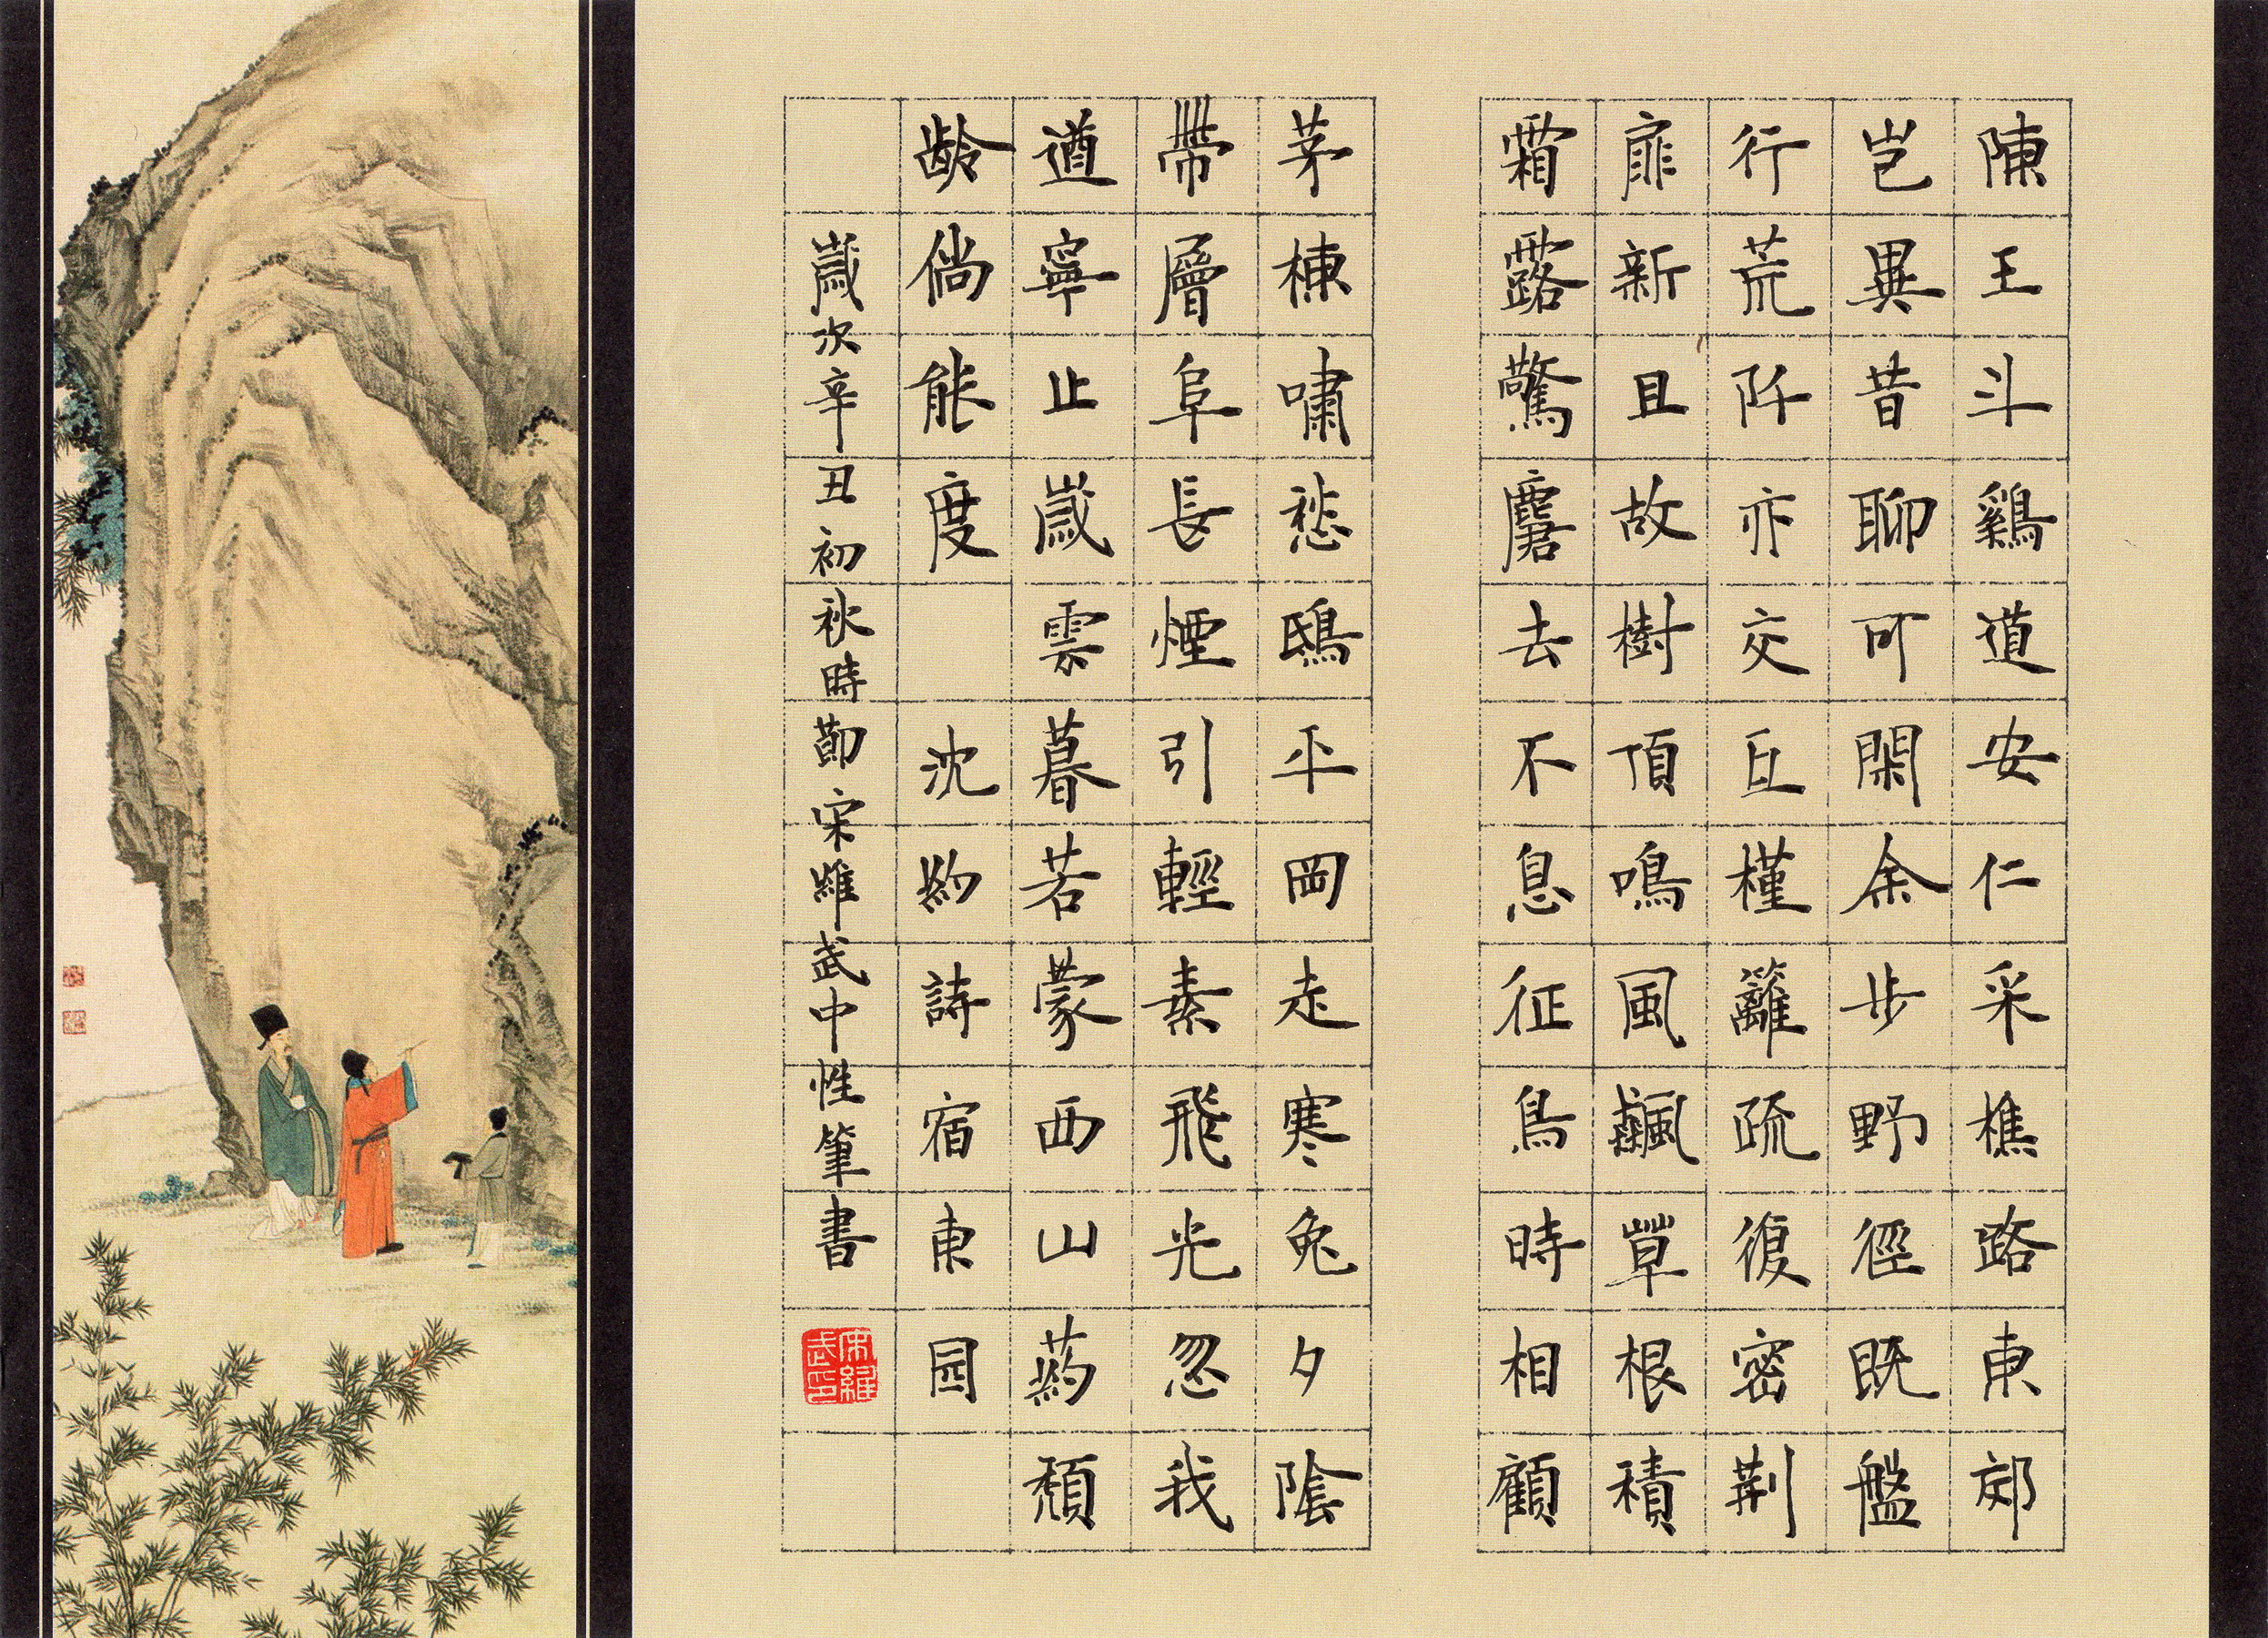 陳王斗鷄道安仁采樵路東郊
岂異昔聊可閑余步野徑既盤
行荒阡亦交互槿籬疏復密荊
扉新且故樹頂鳴風飆草根積
霜露驚麏去不息征鳥時相顧
茅棟嘯愁鴟平岡走寒兔夕陰
帶層阜長煙引輕素飛光忽我
遒寧止歲雲暮若蒙西山葯頹
龄倘能度 沈約詩宿東园
歲次辛丑初秋時節宋維武中性筆書
宋維武印